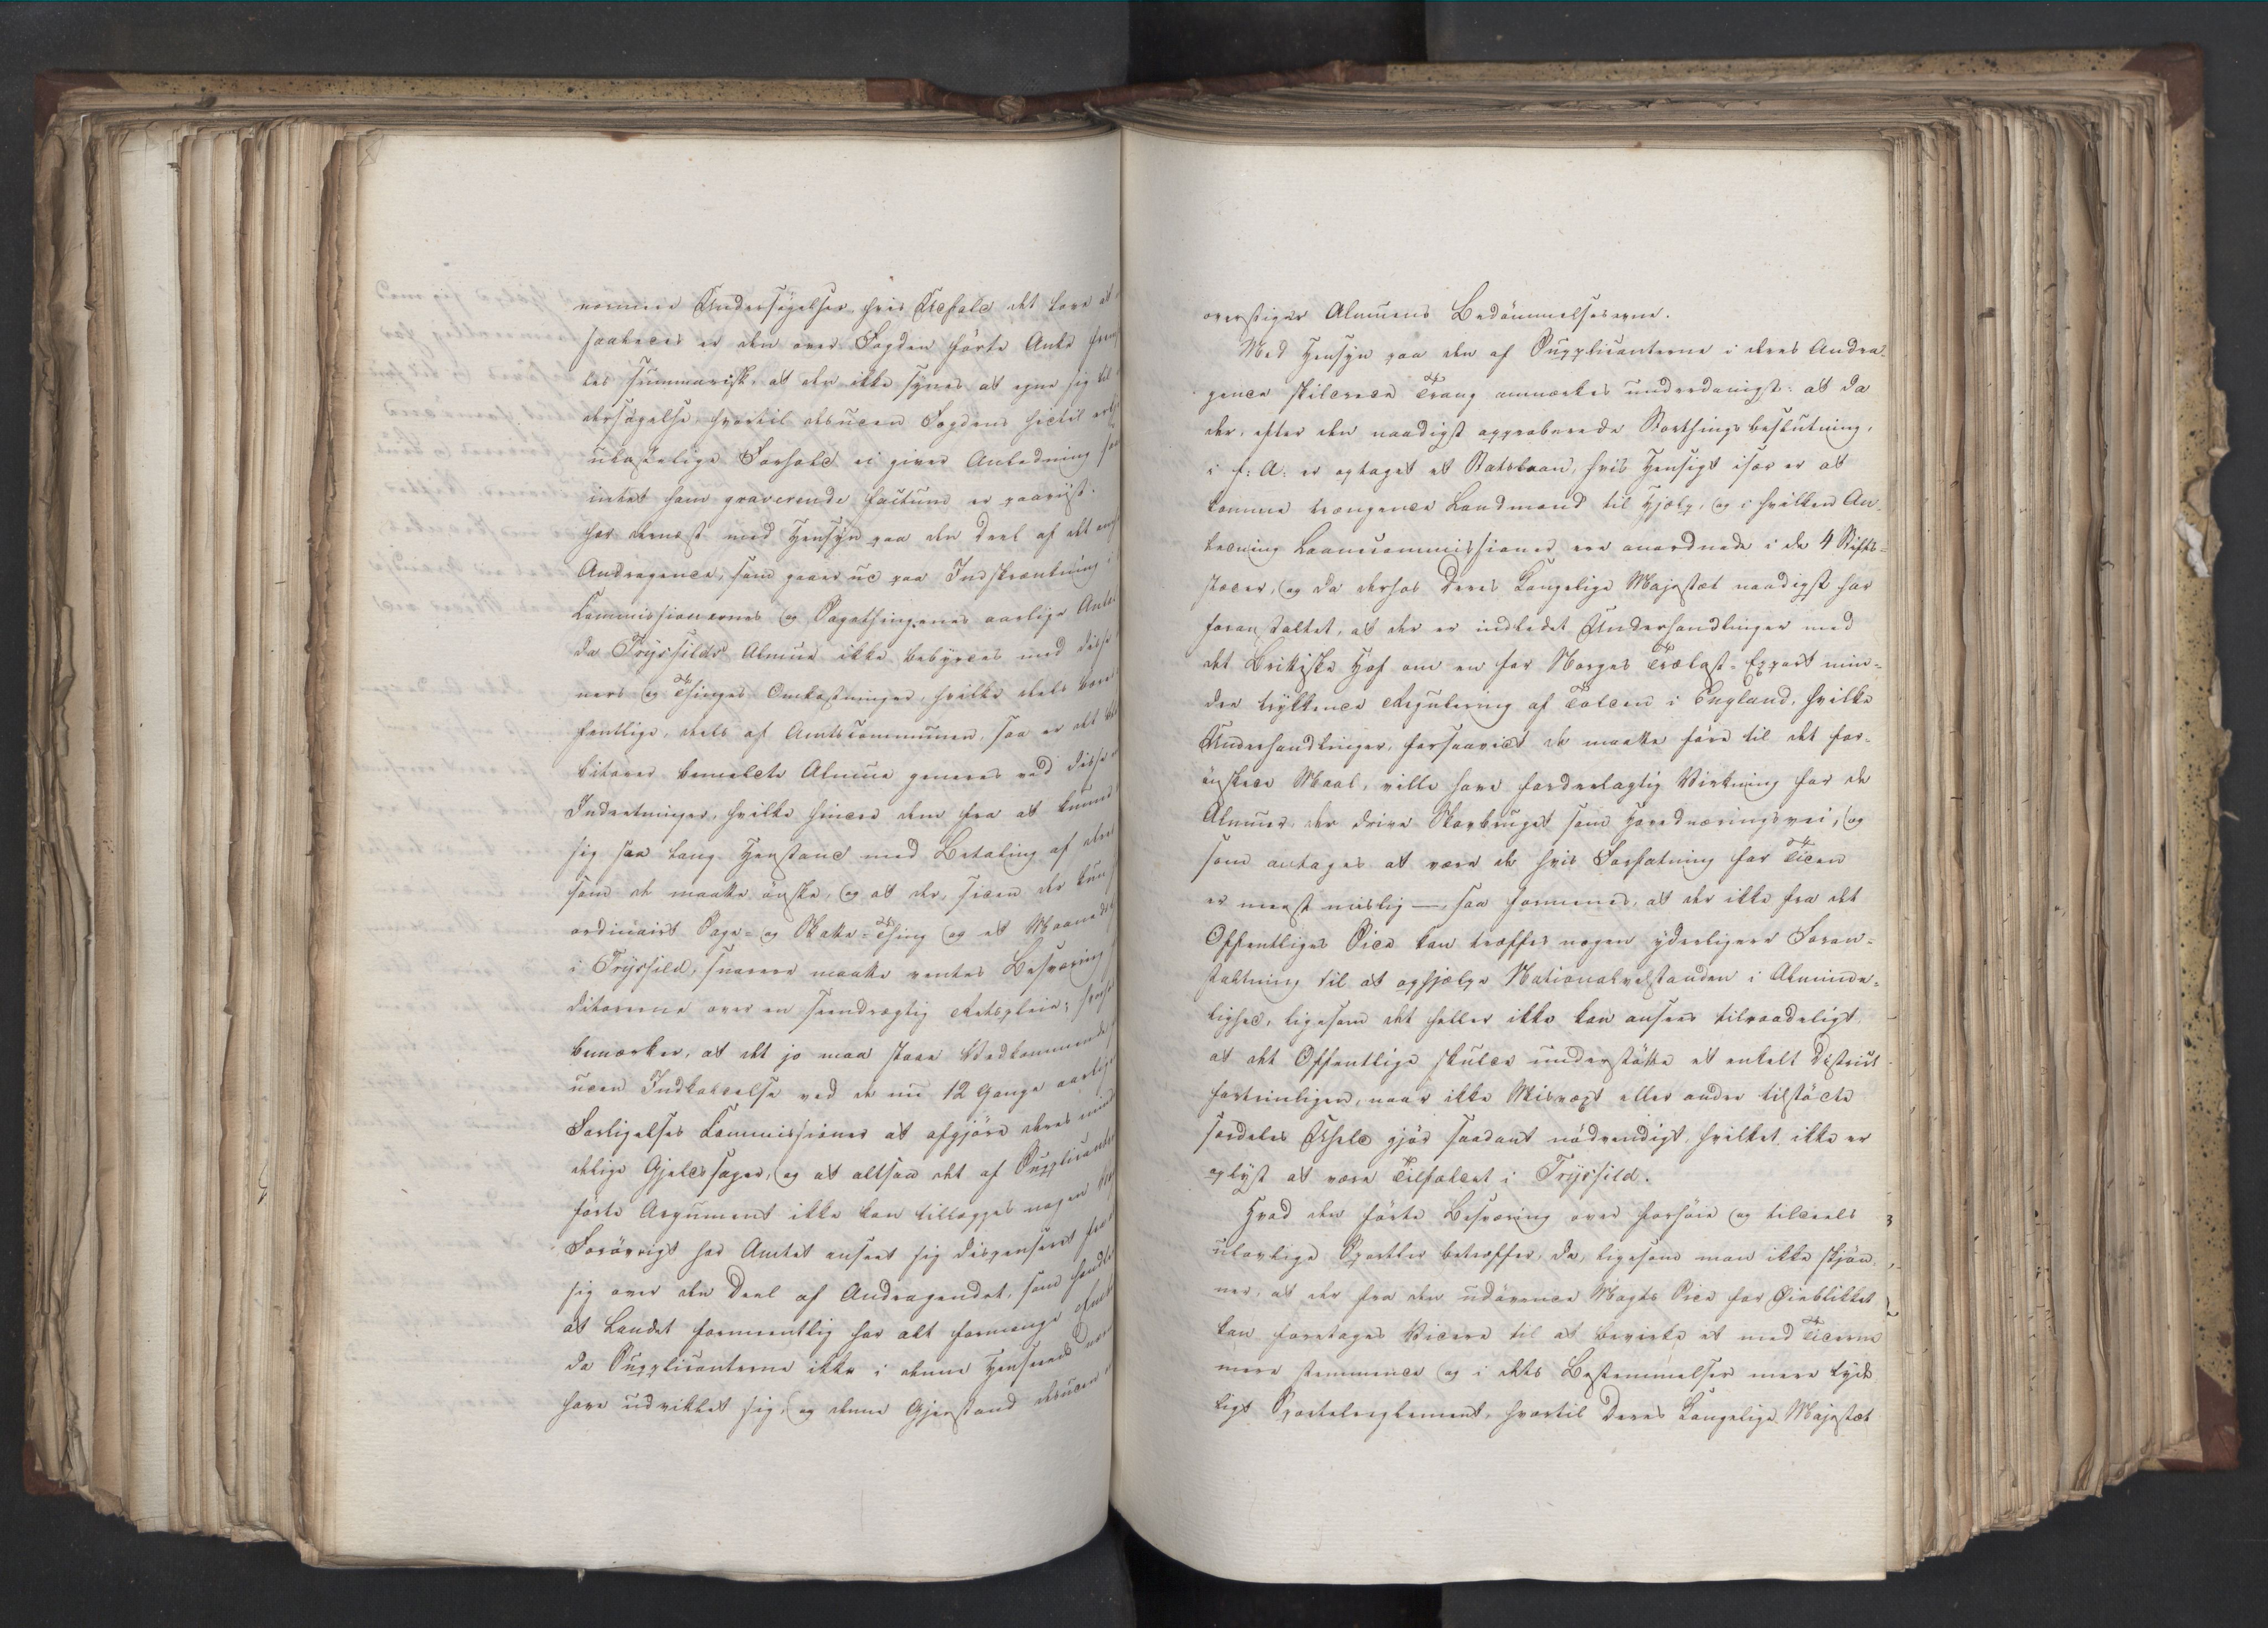 nommere Undersøgelser, hvis Udfald det lore at
saaledes er den over Fogden førte Anke frem
les summarisk, at den ikke synes at egne sig til
dersøgelse, hvortil desuden Fogdens hidtil
ulastelige Forhold ei giver Anledning
intet som graverende factum er paaviist.
har dernæst med Hensyn paa den Deel af det
Andragende, som gaaer ud paa Indskrænkning i
Commissionernes og Sagethingenes aarlige
da Trysilds Almue ikke bebyrdes med disse
ners og Thinges Omkostninger, hvilke dels bæres
fentlige, dels af Amtscommunen, saa er det
bitorer bemeldte Almue generes ved disse
Indretninger, hvilke hindre dem fra at kunne
sig saa lang Henstand med Betaling af deres
som de maatte ønske, og at der, siden der kun
ordinairt Sage- og Skatte-Thing og et Maaneds
i Trysild, snarere maatte ventes Besværing
ditorerne over en seendrægtig Retspleie;
bemærker, at det jo maa staae Vedkommende
uden Indkaldelse ved de nu 12 Gange aarlige
Forligelses Commissioner at afgjøre deres
delige Gjeldssager, og at altsaa det af Supplicanterne
førte Argument ikke kan tillægges nogen
Forøvrigt har Amtet anseet sig dispenseret fra
sig over den Deel af Andragendet, som
at Landet formeentlig har alt formange
da Supplicanterne ikke i denne Henseende
have udviklet sig, og denne Gjenstand desuden
overstiger Almuens Bedømmelsesevne.
Med Hensyn paa den af Supplicanterne i deres Andra-
gende skildrede Trang anmærkes underdanigst: at da
der, efter den naadigst approberede Storthingsbeslutning,
i f: A: er optaget et Statslaan, hvis Hensigt især er at
komme trængende Landmænd til Hjælp, og i hvilken An-
ledning Laanecommissioner ere anordnede i de 4 Stifts-
stæder, og da derhos Deres Kongelige Majestæt naadigst har
foranstaltet, at der er indledet Underhandlinger med
det Brittiske Hof om en for Norges Trælast-Export min-
dre trykkende Regulering af Tolden i England, hvilke
Underhandlinger, forsaavidt de maatte føre til det for-
ønskede Maal, ville have fordeelagtig Virkning for de
Almuer, der drive Skovbruget som Hovednæringsvei, og
som antages at være de hvis Forfatning for Tiden
er meest mislig —, saa formenes, at der ikke fra det
Offentliges Side kan træffes nogen yderligere Foran-
staltning til at ophjælpe Nationalvelstanden i Alminde-
lighed, ligesom det heller ikke kan ansees tilraadeligt
at det Offentlige skulde understøtte et enkelt District
fortrinligen, naar ikke Misvæxt eller andre tilstødte
særdeles Uheld gjør saadant nødvendigt, hvilket ikke er
oplyst at være Tilfældet i Trysild.
Hvad den førte Besværing over forhøie og tildeels
ulovlige Sportler betræffer, da, ligesom man ikke skjøn-
ner, at der fra den udøvende Magts Side for Øieblikket
kan foretages Videre til at bevirke et med Tiderne
mere stemmende og i dets Bestemmelser mere tyde-
ligt Sportelreglement, hvortil Deres Kongelige Majestæt